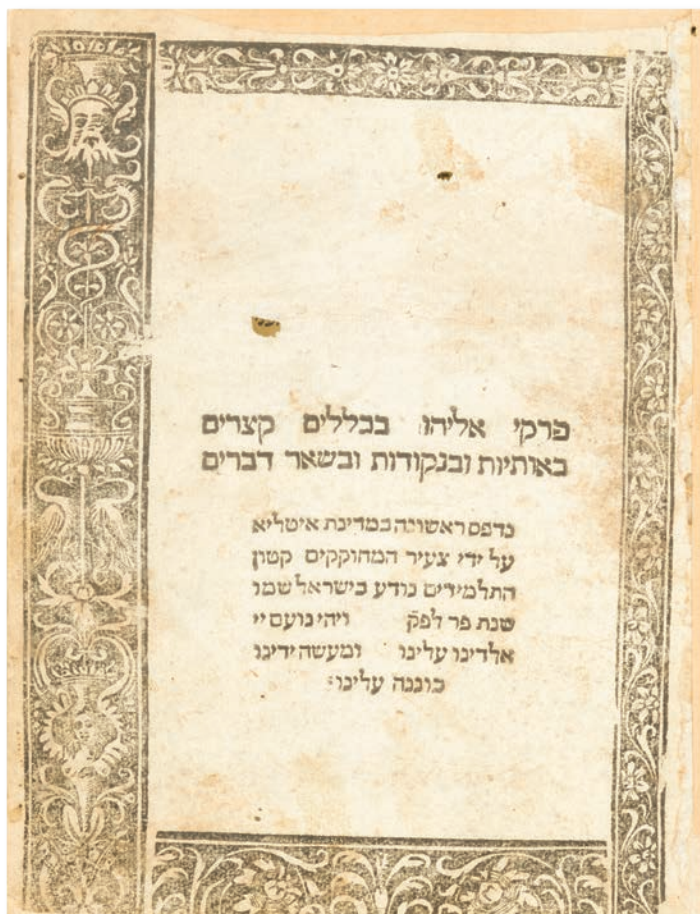 פרקי אליהו בכללים קצרים
באותיות ובנקודות ובשאר דברים
נדפס ראשונה במדינת איטליא
על ידי צעיר המחוקקים קטון
התלמידים נודע בישראל שמו
שנת פר לפק ויהי נועם יי
אלדינו עלינו ומעשה ידינו
כוננה עלינו׃